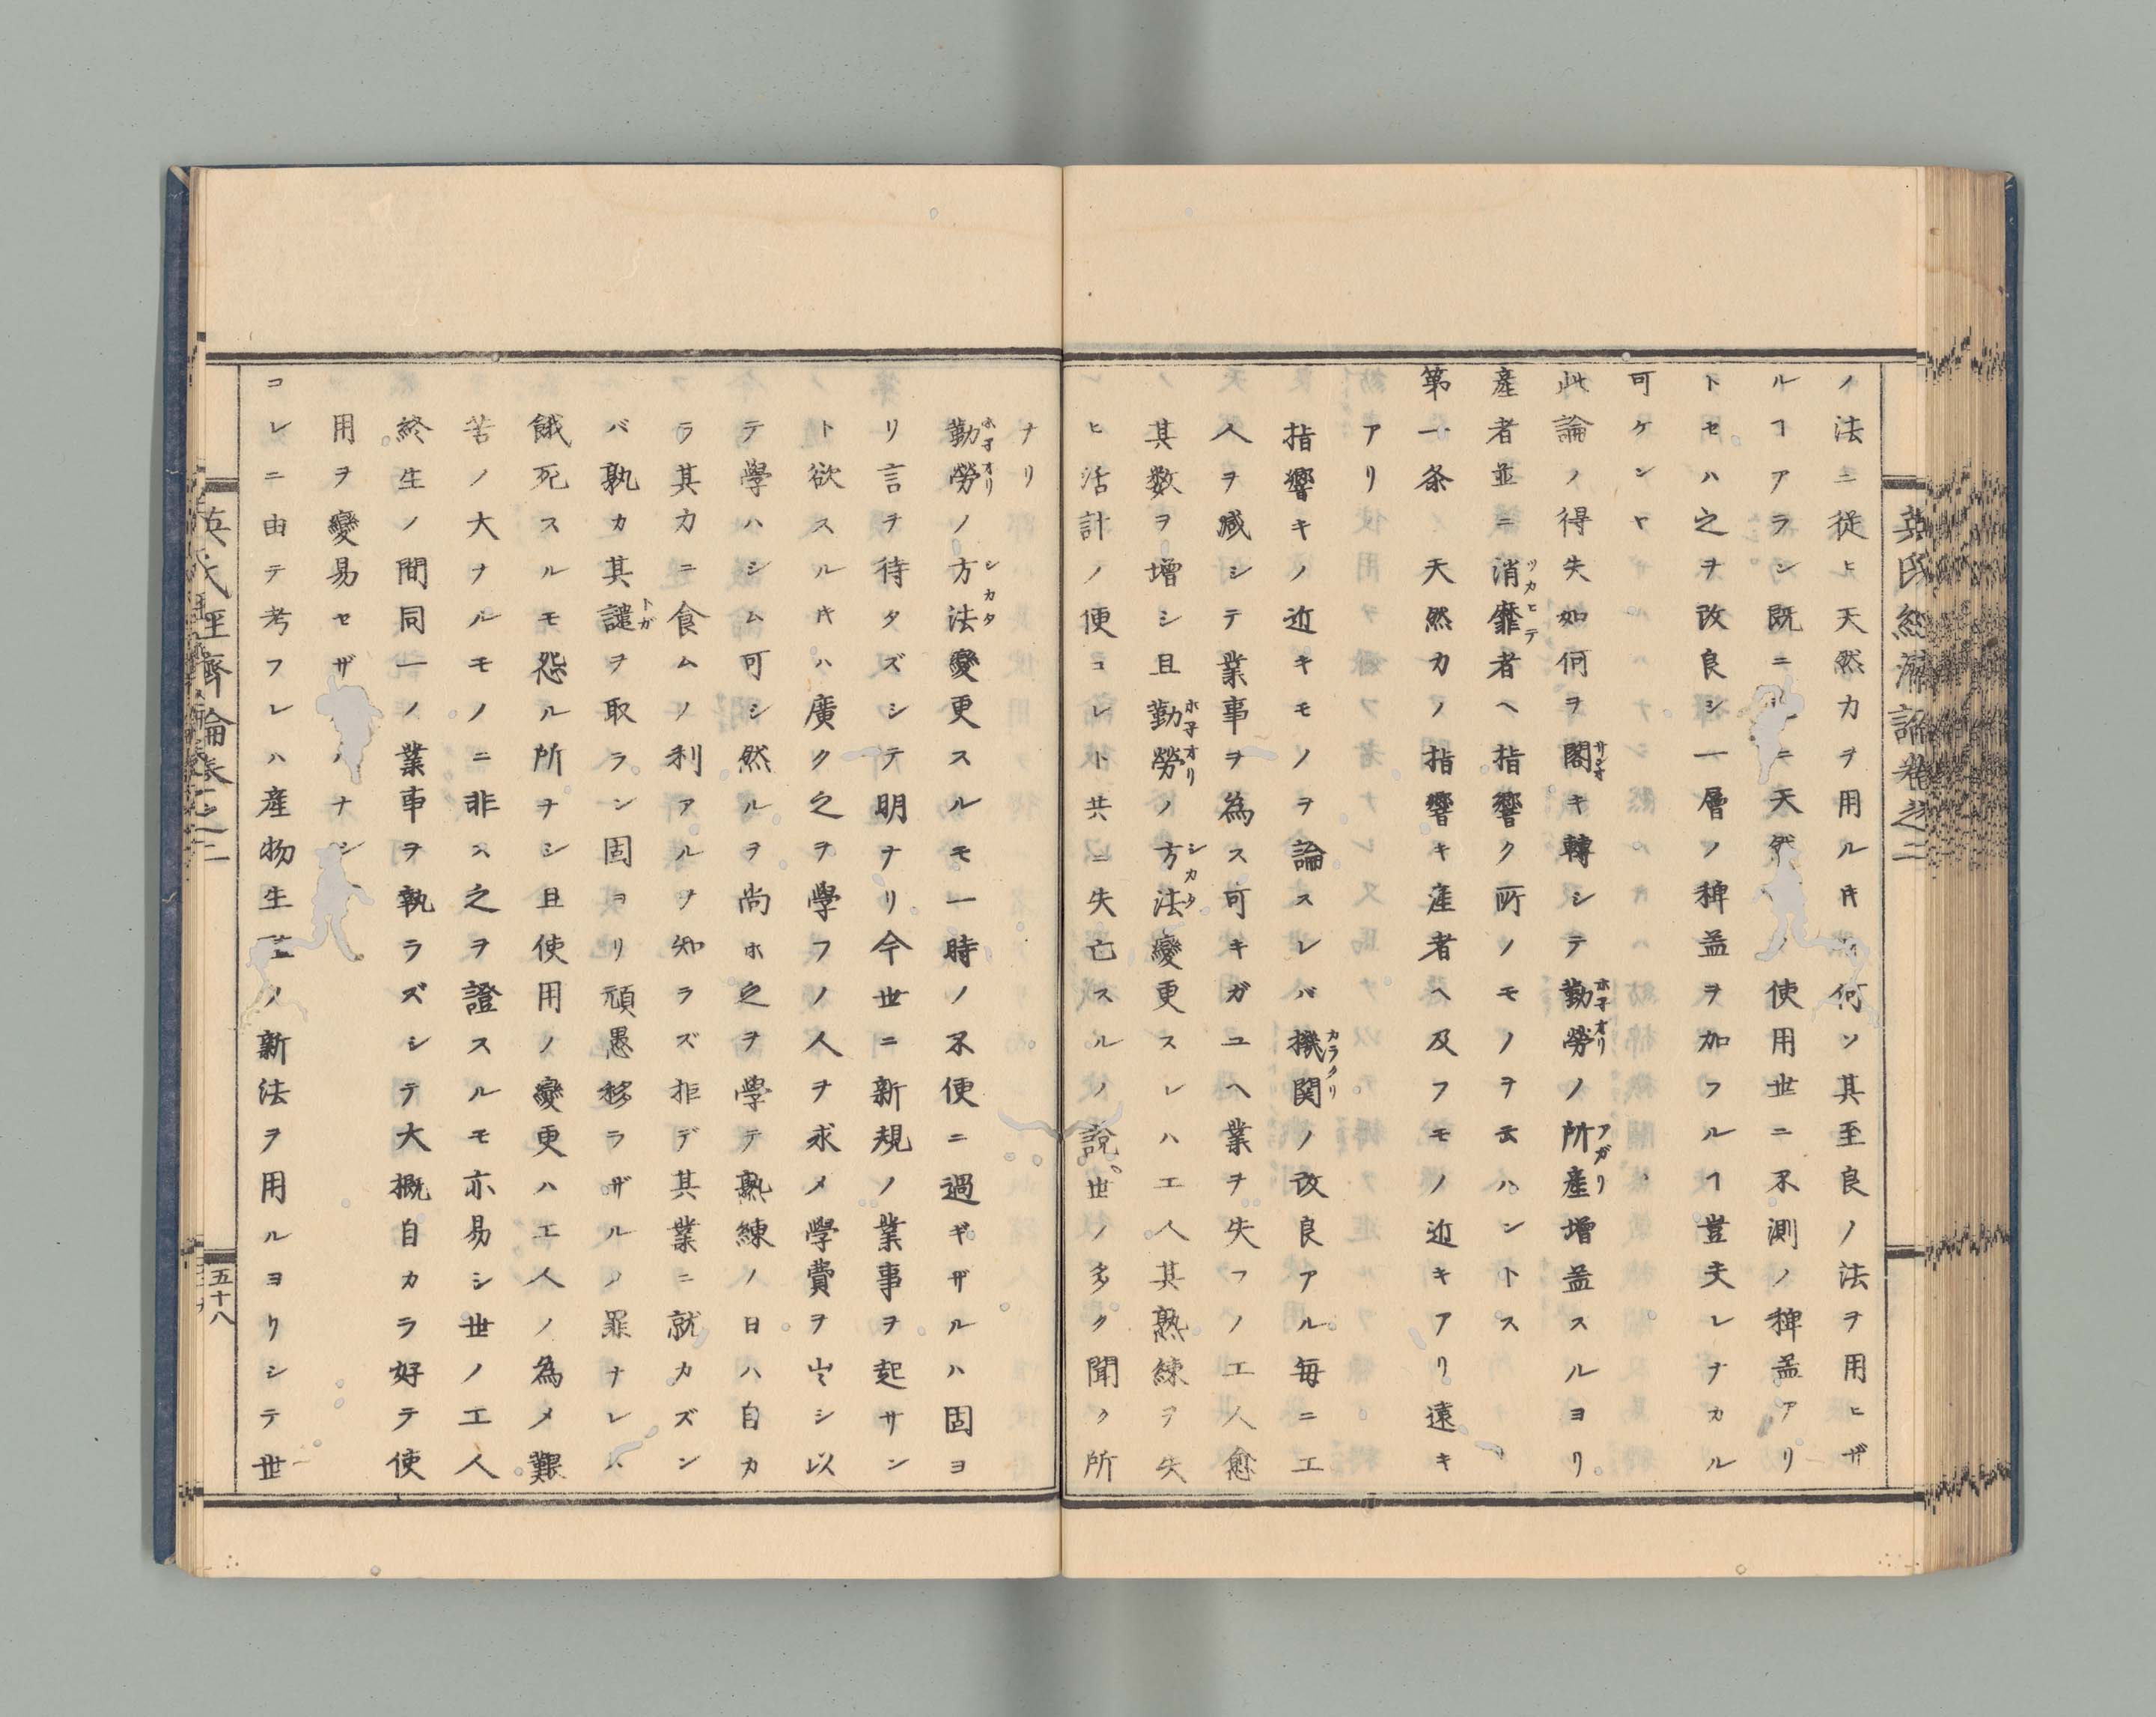 英氏経済論巻之二
ノ法ニ従ヒ天然力ヲ用ルキハ何ソ其至良ノ法ヲ用ヒザ
ルヿアラン既ニ天然ノ使用世ニ不測ノ稗益アリ
トセハ之ヲ改良シ一層ノ稗益ヲ加フルヿ豈夫レナカル
可ケンヤ
此論ノ得失如何ヲ閣キ轉シテ勤勞ノ所産増益スルヨリ
サシオ
ホ子オリ
アガリ
産者並ニ消靡者ヘ指響ク所ノモノヲ云ハントス
ツカヒテ
第一条 天然力ノ指響キ産者ヘ及フモノ近キアリ遠キ
アリ
指響キノ近キモノヲ論スレバ機関ノ改良アル毎ニ工
カラクリ
人ヲ減シテ業事ヲ為ス可キガユヘ業ヲ失フノ工人愈
其数ヲ増シ且勤勞ノ方法變更スレハ工人其熟練ヲ失
ホ子オリ
シカタ
ヒ活計ノ便コレト共ニ失亡スルノ説世ノ多ク聞ク所
ナリ
勤勞ノ方法變更スルモ一時ノ不便ニ過ギザルハ固ヨ
ホ子オリ
シカタ
リ言ヲ待タズシテ明ナリ今世ニ新規ノ業事ヲ起サン
ト欲スルキハ廣ク之ヲ學フノ人ヲ求メ學費ヲ出シ以
テ學ハシム可シ然ルヲ尚ホ之ヲ學テ熟練ノ日ハ自カ
ラ其力ニ食ムノ利アルヲ知ラズ拒デ其業ニ就カズン
バ孰カ其譴ヲ取ラン固ヨリ頑愚移ラザルノ罪ナレハ
トガ
餓死スルモ怨ル所ナシ且使用ノ變更ハ工人ノ為メ艱
苦ノ大ナルモノニ非ス之ヲ證スルモ亦易シ世ノ工人
終生ノ間同一ノ業事ヲ執ラズシテ大概自カラ好テ使
用ヲ變易セザナシ
コレニ由テ考フレハ産物生ノ新法ヲ用ルヨリシテ世
英氏経済論巻之二
五十八